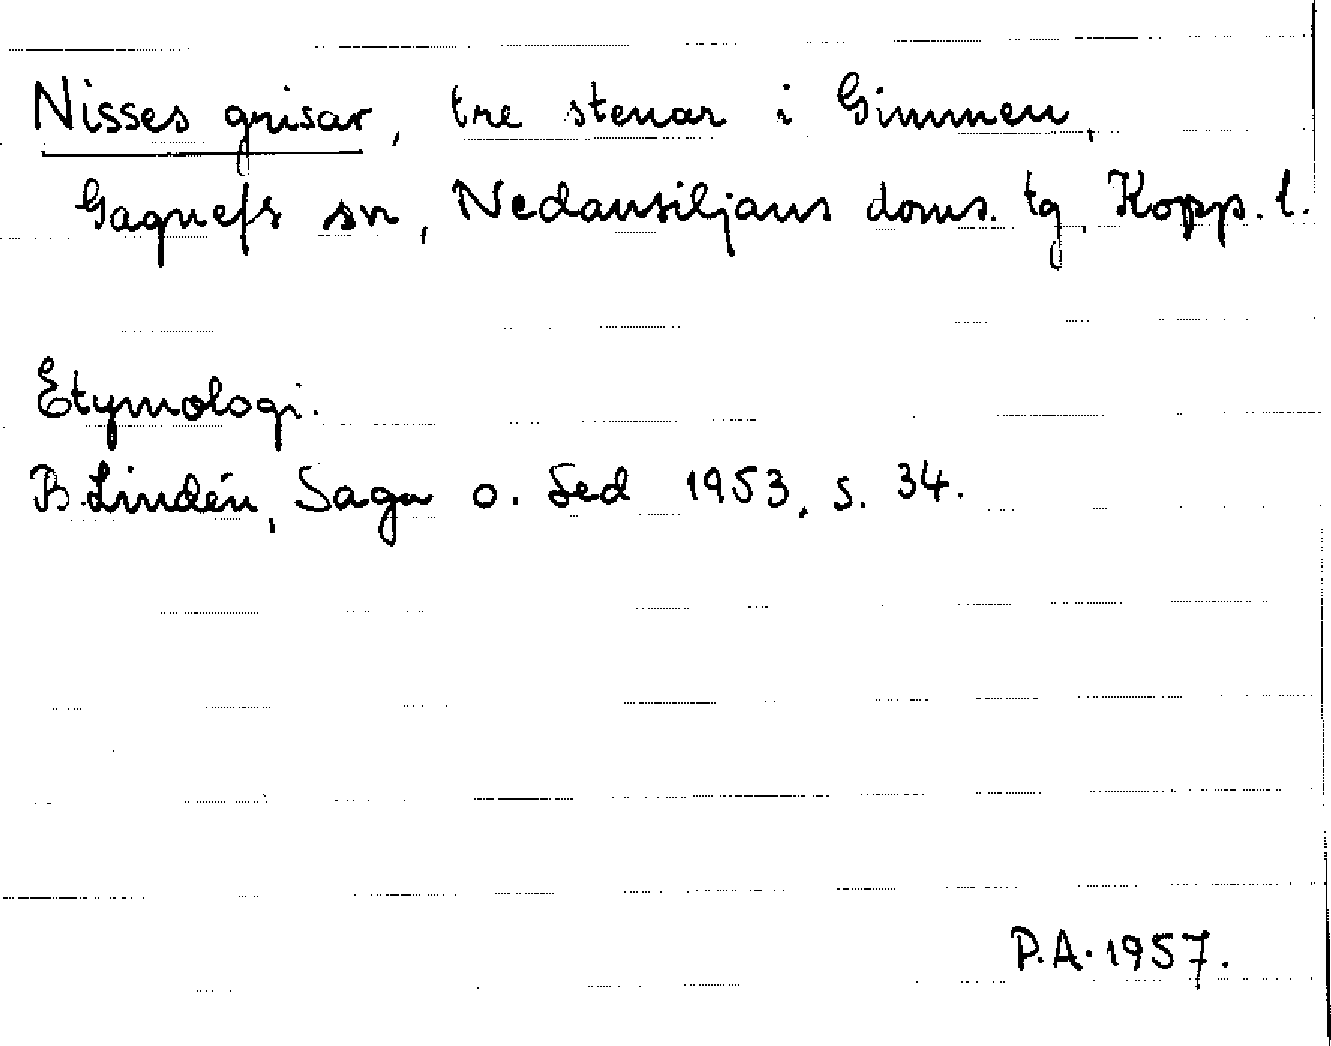 Nisses grisar, tre stenar i Gimmen,
Gagnefs sn, Nedansiljans doms. tg, Kopp. l.
Etymologi.
B. Lindén, Saga o. Sed 1953, s. 34.
P.A. 1957.